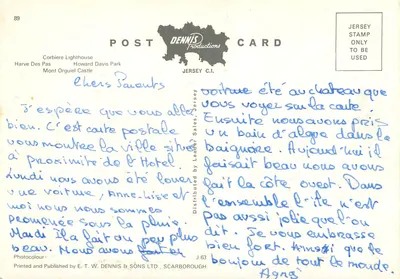 89
POST CARD
DENNIS
Productions
JERSEY C.I.
JERSEY
STAMP
ONLY
TO BE
USED
Corbière Lighthouse
Havre Des Pas Howard Davis Park
Mont Orgueil Castle
Chers Parents
J'espère que vous allez
bien. C'est carte postale
vous montre la ville située
à paoximité de l'Hotel.
Lundi nous avons été louer
une voiture, Anne-Lise et
moi nous nous sommes
promenée sous la pluie.
Mardi Il a fait un peu plus
beau. Nous avons
voiture été au chateau que
vous voyer sur la carte.
Ensuite nous avons pris
un bain d'algue dans la
baignoire. Aujourd'hui il
faisait beau nous avons
fait la côte ouest. Dans
l'ensemble l'île n'est
pas aussi jolie que l'on
dit. Je vous embrasse
bien fort. Ainssi que le
bonjour de tout le monde.
Agnès
Distributed by Leslie Sales, Jersey
Photocolour J.63
Printed and Published by E. T. W. DENNIS & SONS LTD., SCARBOROUGH